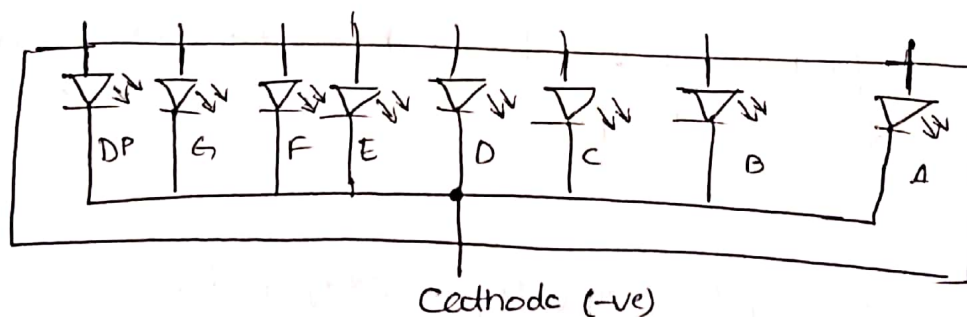 DP G F E D C B A
Cathode (-ve)